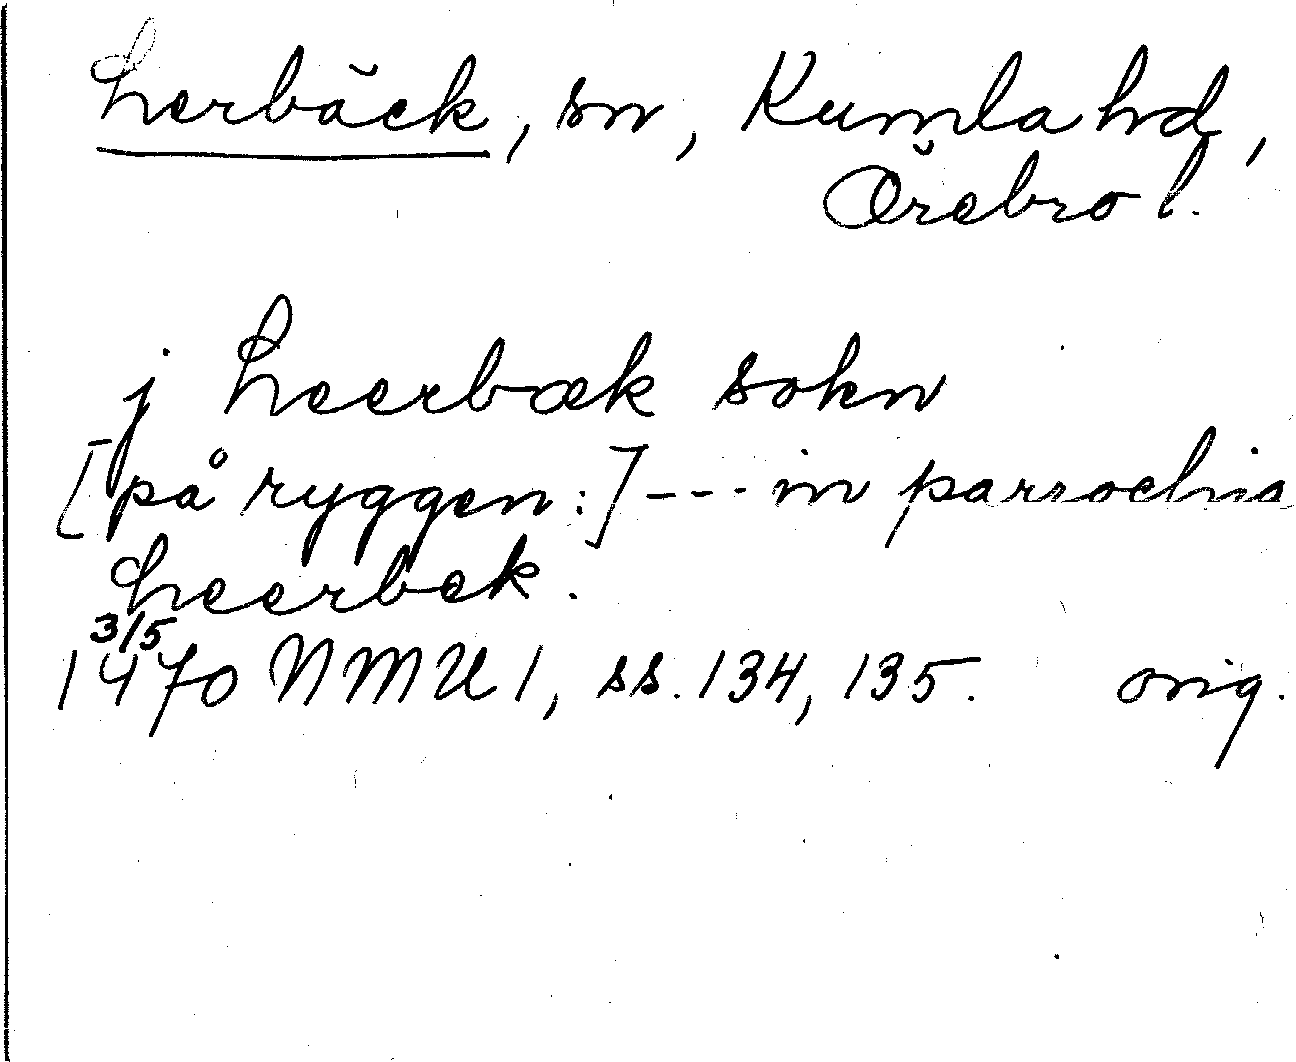 Lerbäck, sn, Kumla hd,
Örebro l.
j Leerbæk sokn
[på ryggen:]--- in parrochia
Leerbek.
3/5
1470 NMU 1, ss. 134, 135. orig.